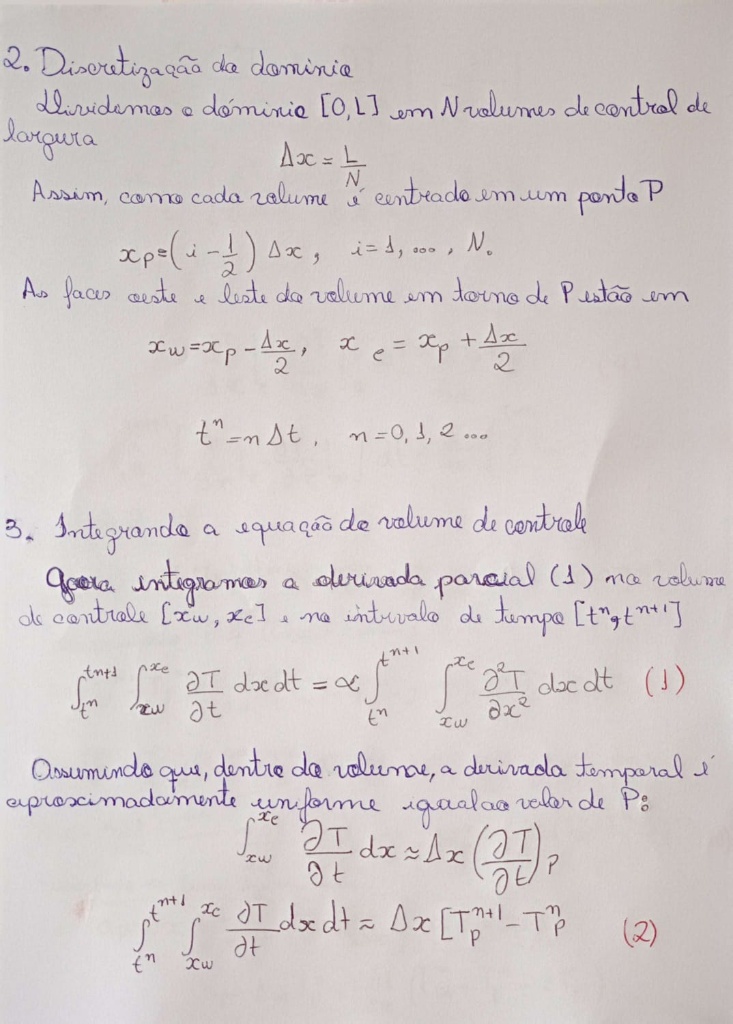 2. Discretização do domínio
Dividimos o domínio [0,L] em N volumes de control de
largura
Δx = L/N
Assim, como cada volume é centrado em um ponto P
x_P = (i - 1/2) Δx, i = 1, ..., N.
As faces oeste e leste do volume em torno de P estão em
x_w = x_P - Δx/2, x_e = x_P + Δx/2
t^n = n Δt, n = 0, 1, 2 ...
3. Integrando a equação do volume de controle
Agora integramos a derivada parcial (1) no volume
de controle [x_w, x_e] e no intervalo de tempo [t^n, t^{n+1}]
∫_{t^n}^{t^{n+1}} ∫_{x_w}^{x_e} ∂T/∂t dx dt = α ∫_{t^n}^{t^{n+1}} ∫_{x_w}^{x_e} ∂²T/∂x² dx dt (1)
Assumindo que, dentro do volume, a derivada temporal é
aproximadamente uniforme igual ao valor de P:
∫_{x_w}^{x_e} ∂T/∂t dx ≈ Δx (∂T/∂t)_P
∫_{t^n}^{t^{n+1}} ∫_{x_w}^{x_e} ∂T/∂t dx dt ≈ Δx [T_P^{n+1} - T_P^n (2)